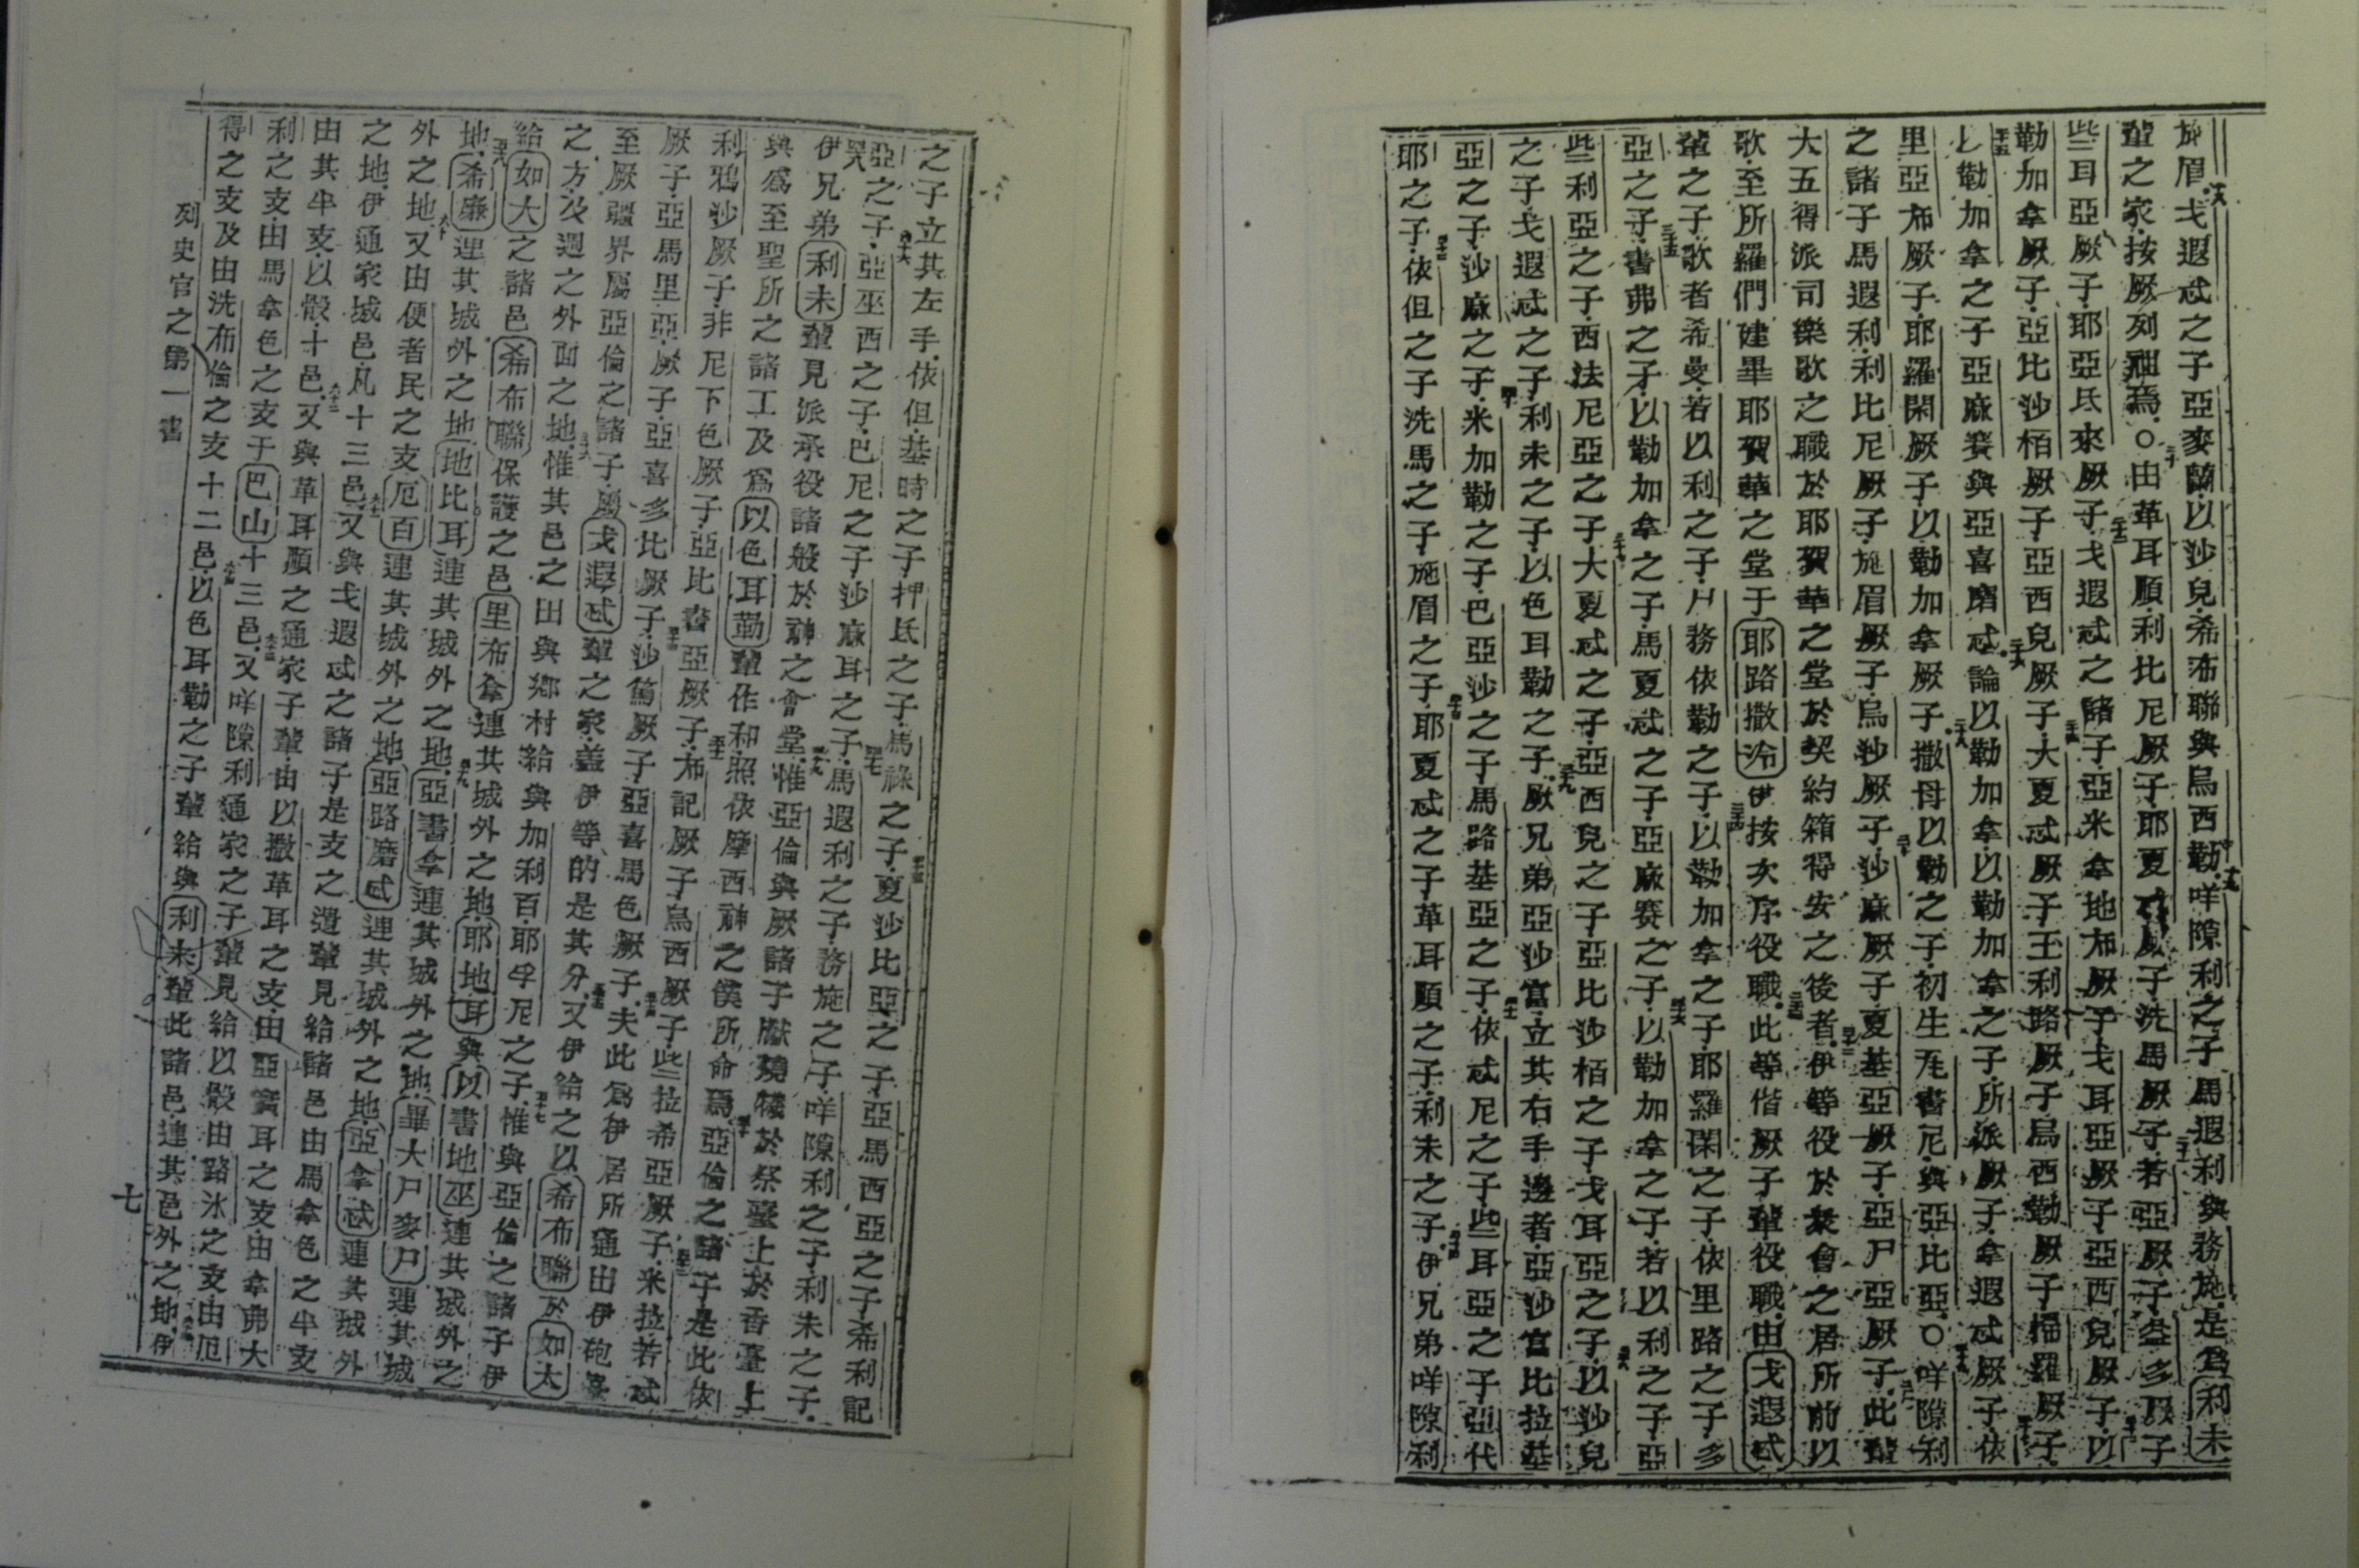 施眉十八戈遐忒之子亞麥蘭以沙兒希布聯與烏西勒十九咩隙利之子馬遐利與務施是為利未
輩之家按厥列祖焉〇二十由革耳順利比尼厥子耶夏忒厥子洗馬厥子二十一若亞厥子益多厥子
些耳亞厥子耶亞氐來厥子二十二戈遐忒之諸子亞米拿地厥子戈耳亞厥子亞西兒厥子二十三以
勒加拿厥子亞比沙栢厥子亞西兒厥子二十四大夏忒厥子王利路厥子烏西勒厥子掃羅厥子
二十五以勒加拿之子亞麻賽與亞喜磨忒二十六論以勒加拿以勒加拿之子所派厥子拿遐忒厥子二十七依
里亞布厥子耶羅閑厥子以勒加拿厥子二十八撒母以勒之子初生瓦書尼與亞比亞〇二十九咩隙利
之諸子馬遐利利比尼厥子施眉厥子烏沙厥子三十沙麻厥子夏基亞厥子亞尸亞厥子三十一此輩
大五得派司樂歌之職於耶賀華之堂於契約箱得安之後者三十二伊等役於衆會之居所前以
歌至所羅們建畢耶賀華之堂于耶路撒冷伊按次序役職三十三此等偕厥子輩役職由戈遐忒
輩之子歌者希曼若以利之子尸務依勒之子三十四以勒加拿之子耶羅閑之子依里路之子多
亞之子三十五書弗之子以勒加拿之子馬夏忒之子亞麻賽之子三十六以勒加拿之子若以利之子亞
些利亞之子西法尼亞之子三十七大夏忒之子亞西兒之子亞比沙栢之子戈耳亞之子三十八以沙兒
之子戈遐忒之子利未之子以色耳勒之子三十九厥兄弟亞沙富立其右手邊者亞沙富比拉基
亞之子沙麻之子四十米加勒之子巴亞沙之子馬路基亞之子四十一依忒尼之子些耳亞之子亞代
耶之子四十二依但之子洗馬之子施眉之子四十三耶夏忒之子革耳順之子利未之子四十四伊兄弟咩隙利
之子立其左手依但基時之子押氐之子馬祿之子四十五夏沙比亞之子亞馬西亞之子希利記
亞之子四十六亞巫西之子巴尼之子沙麻耳之子四十七馬遐利之子務施之子咩隙利之子利未之子
四十八伊兄弟利未輩見派承役諸般於神之會堂四十九惟亞倫與厥諸子獻燒犧於祭臺上於香臺上
與為至聖所之諸工及為以色耳勒輩作和照依摩西神之僕所命焉五十亞倫之諸子是此依
利鴉沙厥子非尼下色厥子亞比書亞厥子五十一布記厥子烏西厥子些拉希亞厥子五十二米拉若忒
厥子亞馬里亞厥子亞喜多比厥子五十三沙篤厥子亞喜馬色厥子五十四夫此為伊居所通出伊砲臺
至厥疆界屬亞倫之諸子屬戈遐忒輩之家蓋伊等的是其分五十五又伊給之以希布聯於如太
之方及週之外面之地五十六惟其邑之田與鄉村給與加利百耶孚尼之子五十七惟與亞倫之諸子伊
給如大之諸邑希布聯保護之邑里布拿連其城外之地耶地耳與以書地巫連其城外之
地五十八希廉連其城外之地地比耳連其城外之地五十九亞書拿連其城外之地畢大尸麥尸連其城
外之地六十又由便者民之支厄百連其城外之地亞路磨忒連其城外之地亞拿忒連其城外
之地伊通家城邑凡十三邑六十一又與戈遐忒之諸子是支之遺輩見給諸邑由馬拿色之半支
由其半支以骰十邑六十二又與革耳順之通家子輩由以撒革耳之支由亞實耳之支由拿弗大
利之支由馬拿色之支于巴山十三邑六十三又咩隙利通家之子輩見給以骰由路氷之支由厄
得之支及由洗布倫之支十二邑六十四以色耳勒之子輩給與利未輩此諸邑連其邑外之地六十五伊
列史官之第一書
七